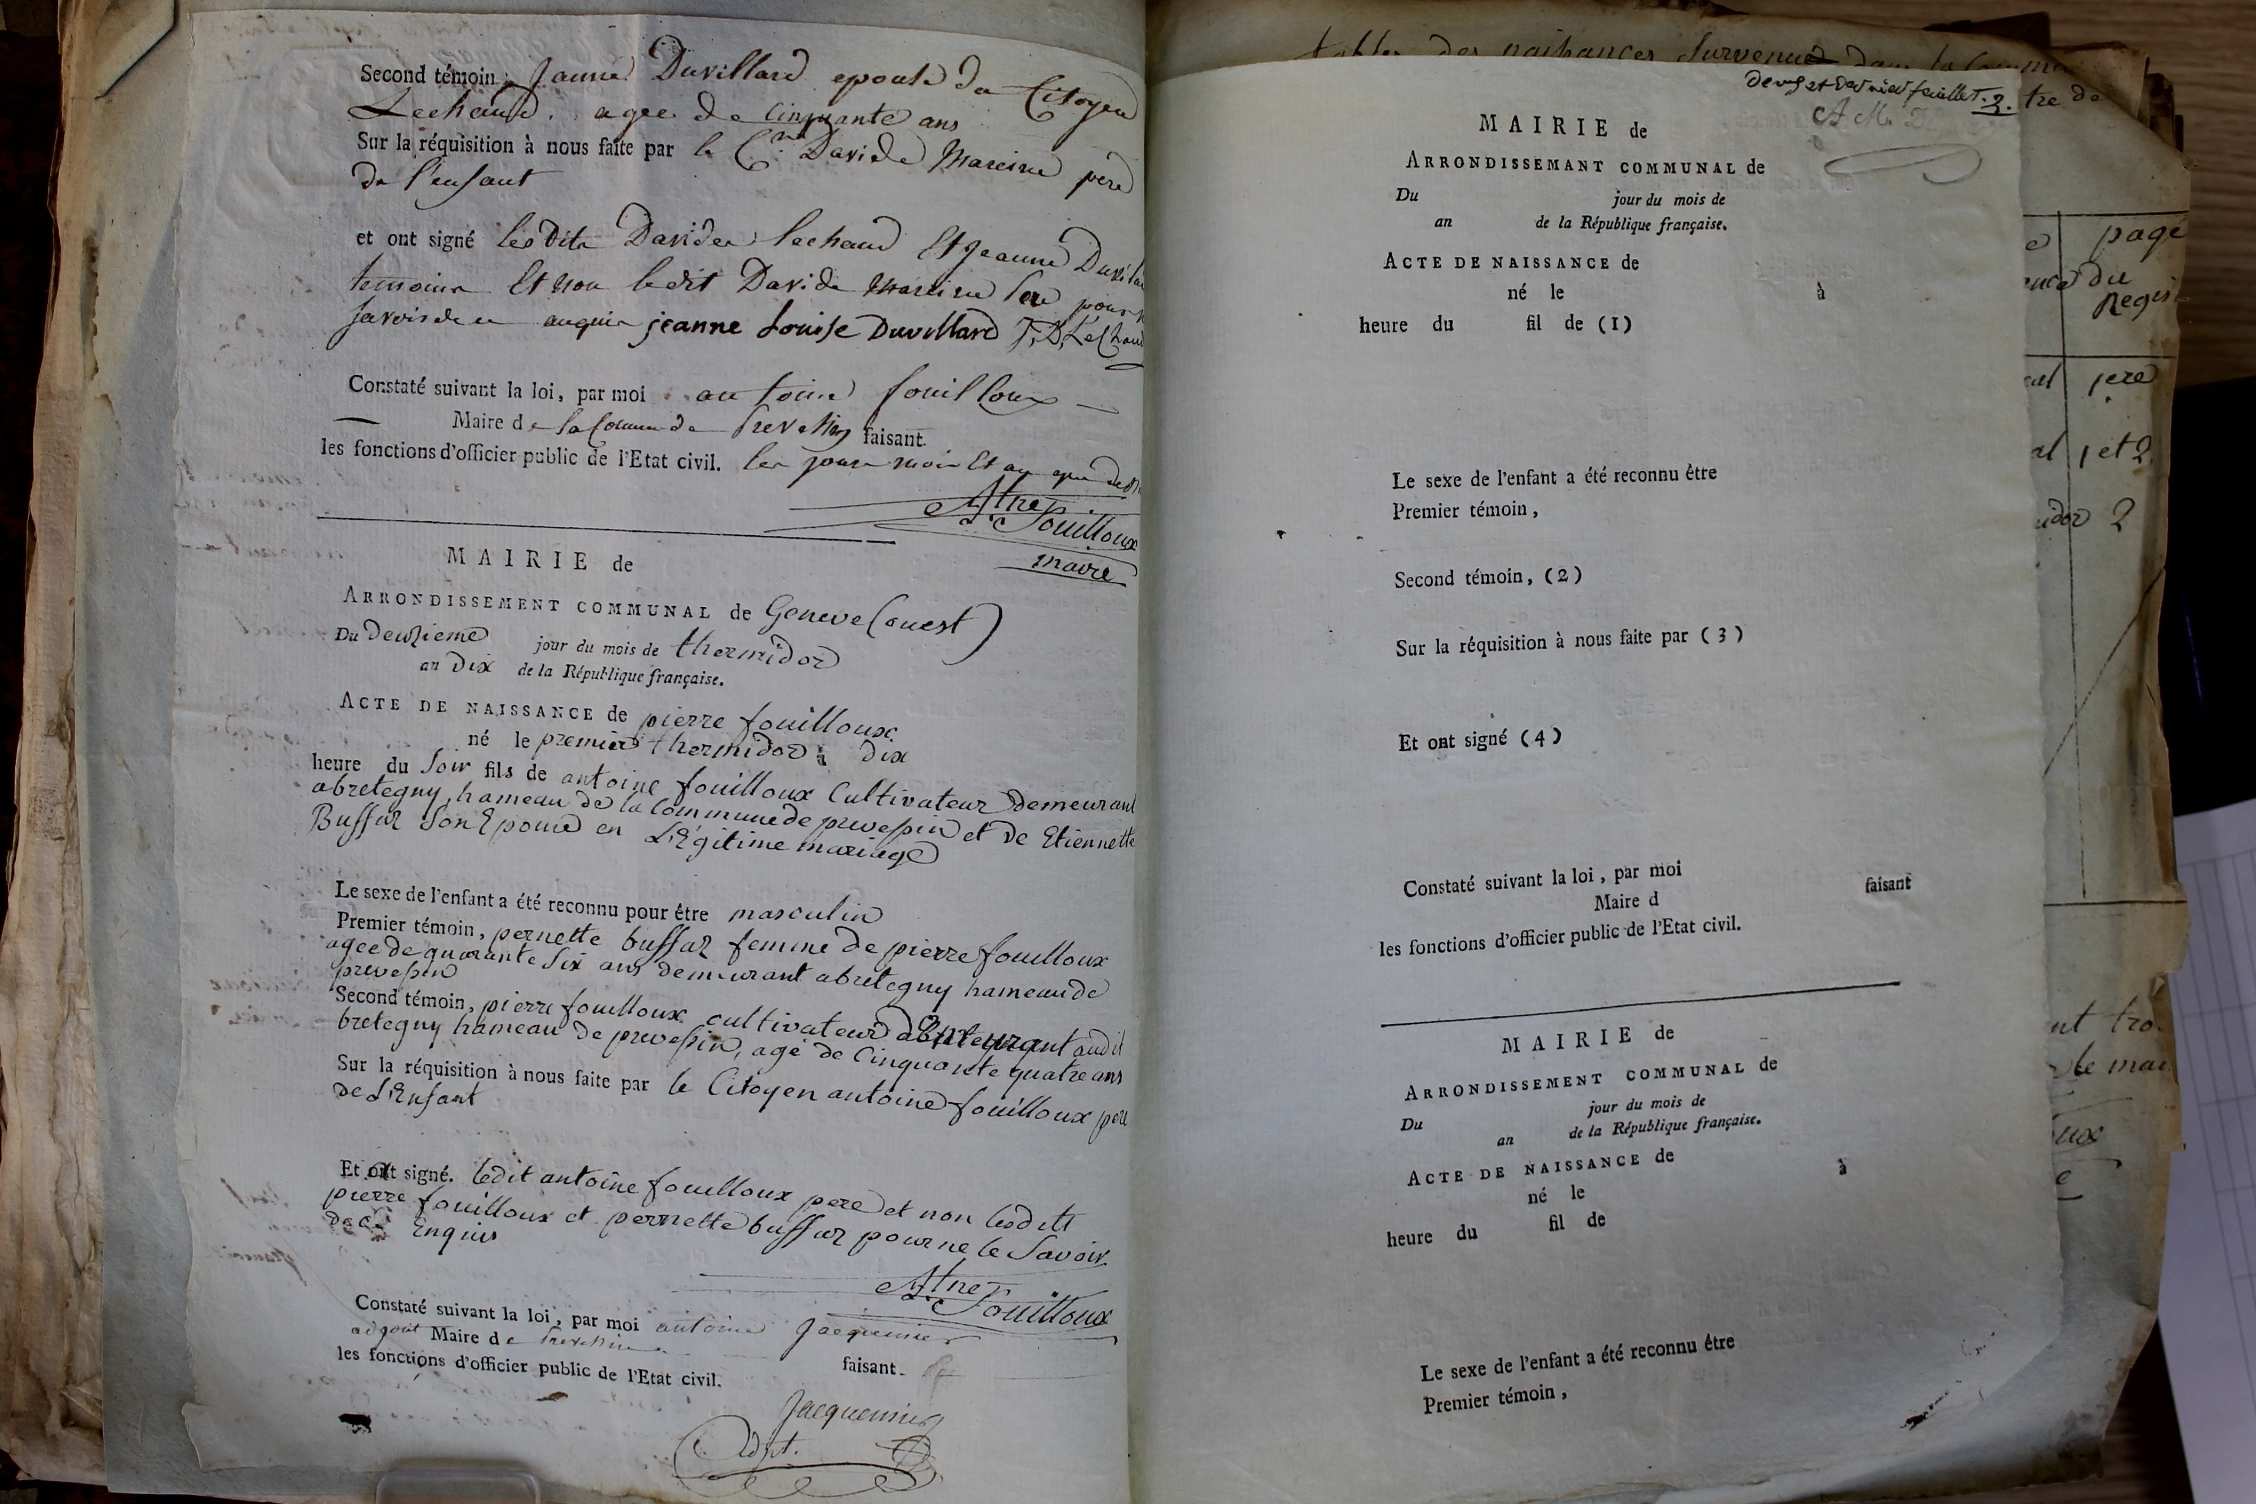 Second témoin, Jeanne Duvillard epouse du Citoyen
Lechaud. agée de Cinquante ans
Sur la réquisition à nous faite par le Cen David Mareine pere
de l'enfant
et ont signé lesdits David Lechaud Et Jeanne Duvilla
temoins Et non ledit David Mareine pour
savoir de ce enquis jeanne Louise Duvillard J, D, LeChaud
Constaté suivant la loi, par moi antoine fouilloux
Maire de la Commune de Prevessin faisant
les fonctions d'officier public de l'Etat civil. les jour mois Et an que
Atne Fouilloux
maire
MAIRIE de
ARRONDISSEMENT COMMUNAL de Geneve (ouest)
Du deuzieme jour du mois de thermidor
an Dix de la République française.
ACTE DE NAISSANCE de pierre fouilloux
né le premier thermidor à dix
heure du Soir fils de antoine fouilloux Cultivateur demeurant
abretegny, hameau de la Commune de prevessin et de Etiennette
Buffaz Son Epouse en Légitime mariage
Le sexe de l'enfant a été reconnu pour être masculin
Premier témoin, pernette buffaz femme de pierre fouilloux
agee de quarante Six ans demeurant abretegny hameau de
prevessin
Second témoin, pierre fouilloux cultivateur demeurant audit
bretegny hameau de prevessin, agé de Cinquante quatre ans
Sur la réquisition à nous faite par le Citoyen antoine fouilloux pere
de L'Enfant
Et ont signé. ledit antoine fouilloux pere et non lesdits
pierre fouilloux et pernette buffaz pour ne le Savoir
de ce Enquis
Atne Fouilloux
Constaté suivant la loi, par moi antoine Jacquemier
adjoint Maire de Prevessin faisant
les fonctions d'officier public de l'Etat civil.
Jacquemier
Adjt.
tables des naissances Survenues dans la Commu
deux et dernier feuillet. 2.
tre de
A. M. D.
MAIRIE de
ARRONDISSEMANT COMMUNAL de
Du jour du mois de
an de la République française.
ACTE DE NAISSANCE de
né le à
heure du fil de (1)
Le sexe de l'enfant a été reconnu être
Premier témoin,
Second témoin, (2)
Sur la réquisition à nous faite par (3)
Et ont signé (4)
Constaté suivant la loi, par moi
Maire d faisant
les fonctions d'officier public de l'Etat civil.
MAIRIE de
ARRONDISSEMENT COMMUNAL de
Du jour du mois de
an de la République française.
ACTE DE NAISSANCE de
né le à
heure du fil de
Le sexe de l'enfant a été reconnu être
Premier témoin,
page
du
Regis
1ere
1 et 2
idor 2
nt tro
le mai
ux